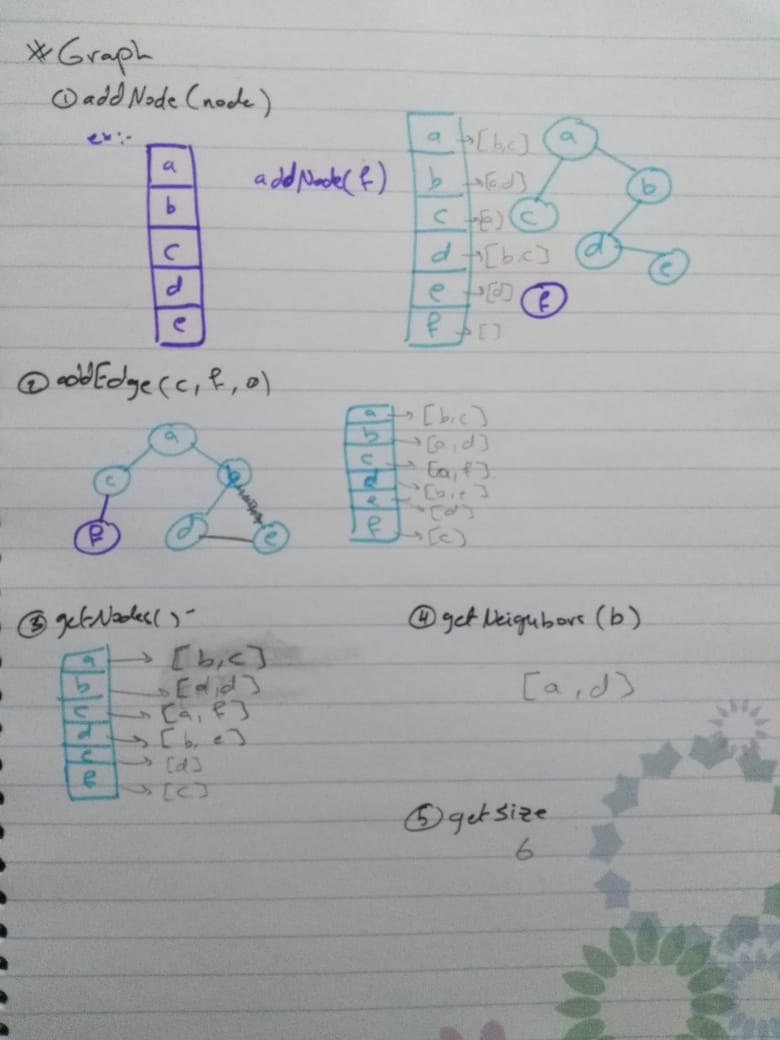 * Graph
① addNode(node)
ex:-
a
b
c
d
e
addNode(f)
a → [b,c]
b → [a,d]
c → [a]
d → [b,c]
e → [d]
f → []
a
b
c
d
e
f
② addEdge(c, f, 0)
a
c
b
f
d
e
a → [b,c]
b → [a,d]
c → [a,f]
d → [b,e]
e → [d]
f → [c]
③ getNodes()-
a → [b,c]
b → [d,d]
c → [a,f]
d → [b,e]
e → [d]
f → [c]
④ getNeigubors(b)
[a,d]
⑤ getsize
6